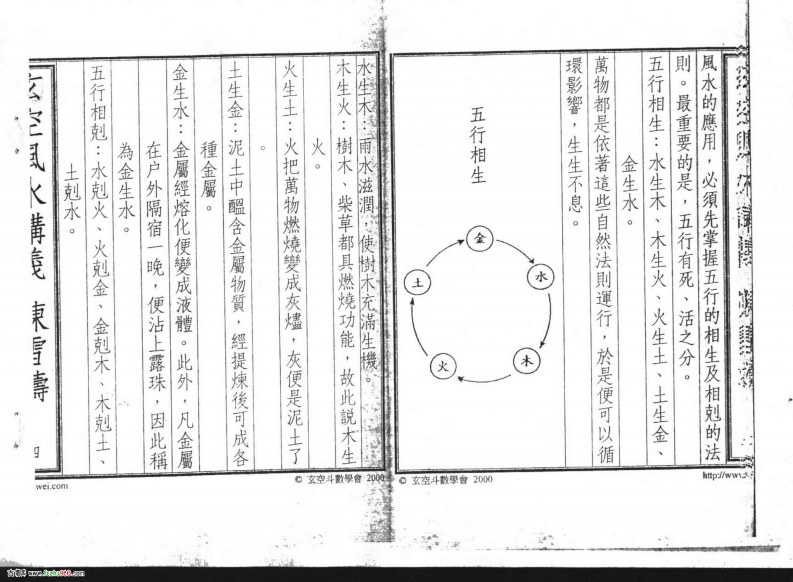 風水的應用，必須先掌握五行的相生及相剋的法
則。最重要的是，五行有死、活之分。
五行相生：水生木、木生火、火生土、土生金、
金生水。
萬物都是依著這些自然法則運行，於是便可以循
環影響，生生不息。
五行相生
金
水
木
火
土
http://www
© 玄空斗數學會 2000
水生木：雨水滋潤，使樹木充滿生機。
木生火：樹木、柴草都具燃燒功能，故此説木生
火。
火生土：火把萬物燃燒變成灰燼，灰便是泥土了
。
土生金：泥土中醞含金屬物質，經提煉後可成各
種金屬。
金生水：金屬經熔化便變成液體。此外，凡金屬
在户外隔宿一晚，便沾上露珠，因此稱
為金生水。
五行相剋：水剋火、火剋金、金剋木、木剋土、
土剋水。
玄空風水講義 陳雪濤
四
© 玄空斗數學會 2000
wei.com